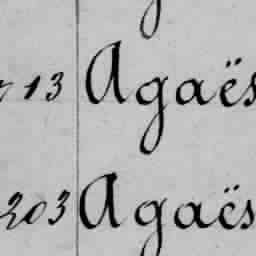 13 Agaës
203 Agaës